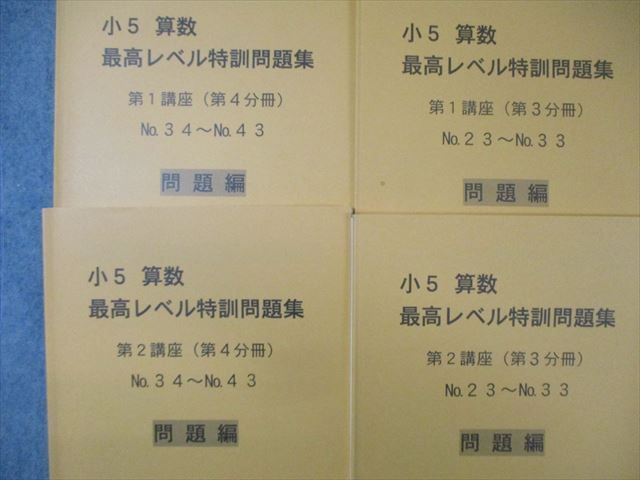 小5 算数
最高レベル特訓問題集
第1講座（第4分冊）
No.34～No.43
問題編
小5 算数
最高レベル特訓問題集
第1講座（第3分冊）
No.23～No.33
問題編
小5 算数
最高レベル特訓問題集
第2講座（第4分冊）
No.34～No.43
問題編
小5 算数
最高レベル特訓問題集
第2講座（第3分冊）
No.23～No.33
問題編